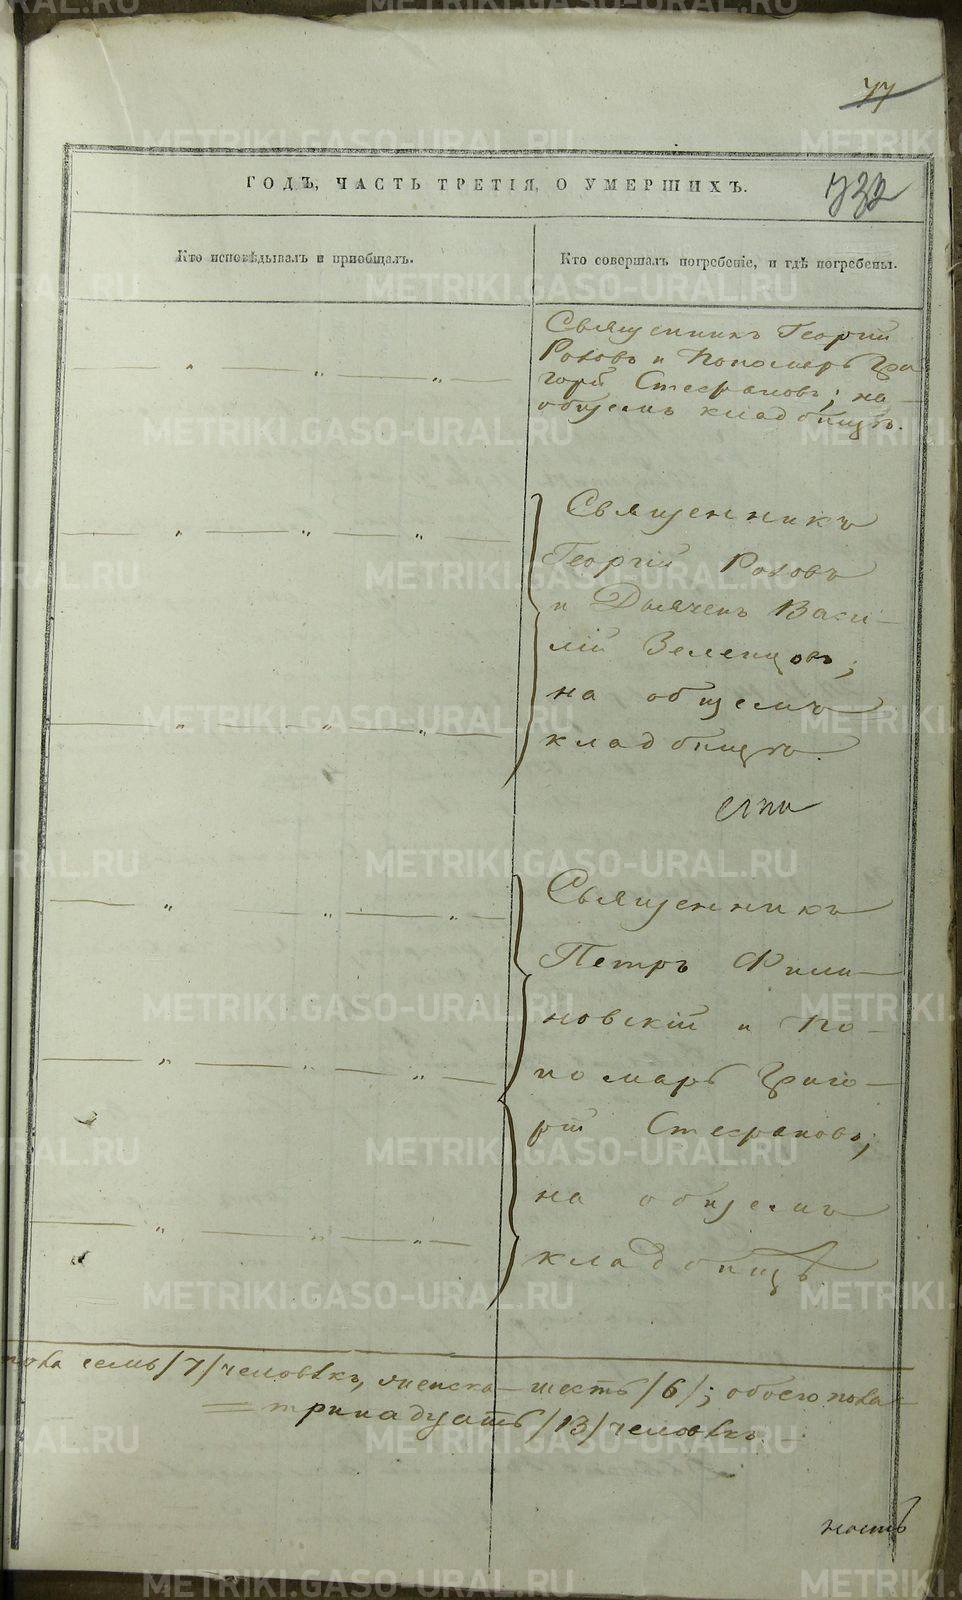 77
732
ГОДЪ, ЧАСТЬ ТРЕТІЯ, О УМЕРШИХЪ.
Кто исповѣдывалъ и приобщалъ.
Кто совершалъ погребеніе, и гдѣ погребены.
Священникъ Георгій
Роховъ и Пономарь Гри
горій Стефановъ; на
общемъ кладбищѣ.
Священникъ
Георгій Роховъ
и Дьячекъ Васи-
лій Зеленцовъ;
на общемъ
кладбищѣ.
Священникъ
Петръ
новскій и По-
номарь Григо-
рій Стефановъ;
на общемъ
кладбищѣ.
пола семь /7/ человѣкъ, женска - шесть /6/; обоего пола -
= тринадцать /13/ человѣкъ. -
ность
METRIKI.GASO-URAL.RU